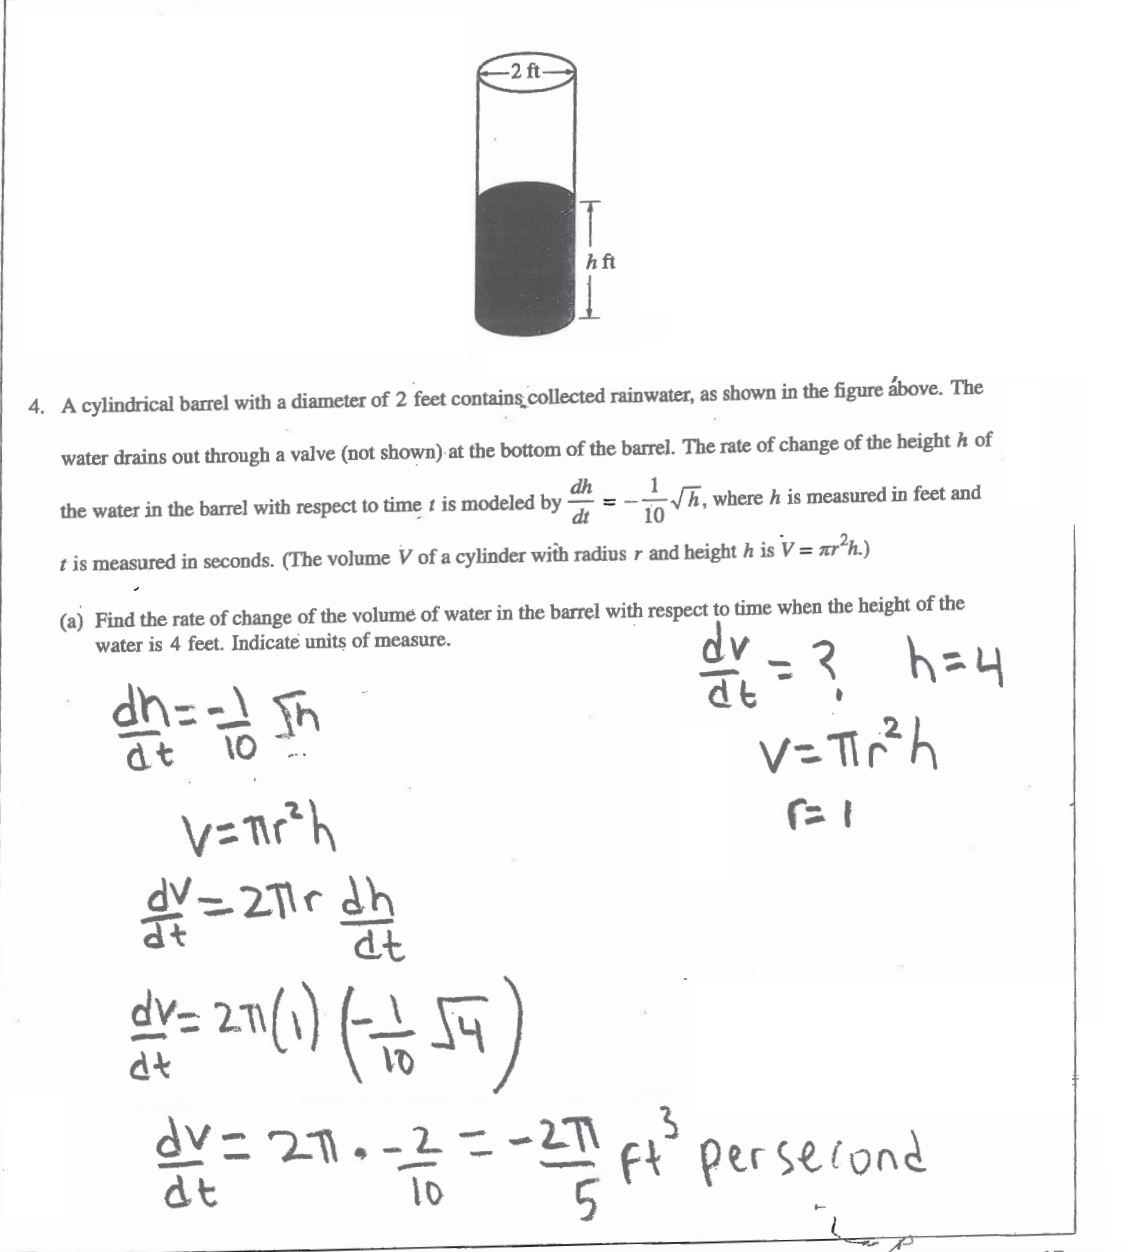 2 ft
h ft
4. A cylindrical barrel with a diameter of 2 feet contains collected rainwater, as shown in the figure above. The
water drains out through a valve (not shown) at the bottom of the barrel. The rate of change of the height h of
the water in the barrel with respect to time t is modeled by dh/dt = -1/10 √h, where h is measured in feet and
t is measured in seconds. (The volume V of a cylinder with radius r and height h is V = πr²h.)
(a) Find the rate of change of the volume of water in the barrel with respect to time when the height of the
water is 4 feet. Indicate units of measure.
dv/dt = ? h=4
dh/dt = -1/10 √h
V=πr²h
r=1
V=πr²h
dV/dt = 2πr dh/dt
dv/dt = 2π(1)(-1/10 √4)
dv/dt = 2π · -2/10 = -2π/5 ft³ per second